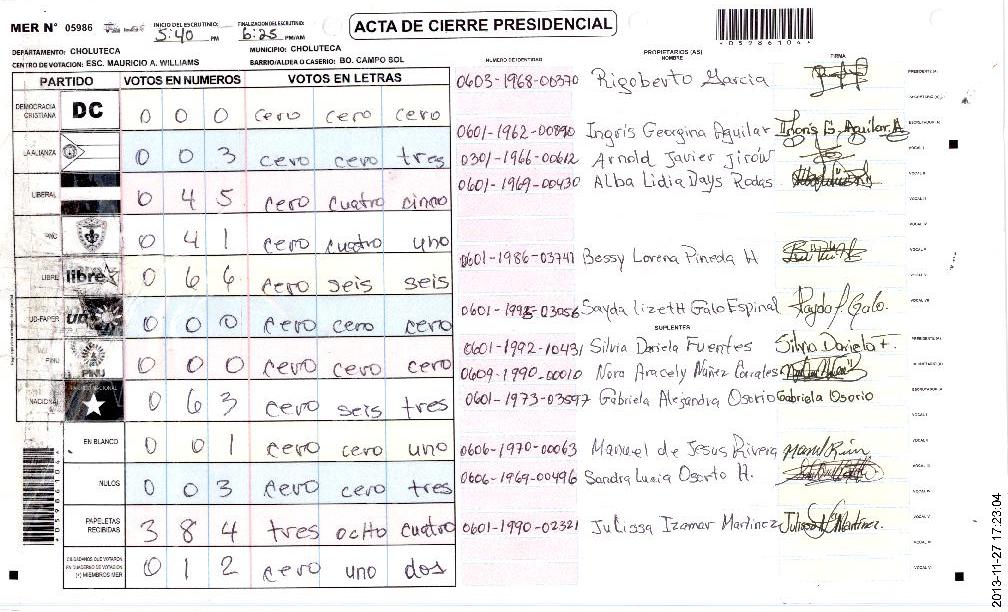 MER N° 05986 INICIO DEL ESCRUTINIO: 5:40 PM FINALIZACION DEL ESCRUTINIO: 6:25 PM/AM ACTA DE CIERRE PRESIDENCIAL
*05986104*
DEPARTAMENTO: CHOLUTECA MUNICIPIO: CHOLUTECA
CENTRO DE VOTACION: ESC. MAURICIO A. WILLIAMS BARRIO/ALDEA O CASERIO: BO. CAMPO SOL
NUMERO DE IDENTIDAD PROPIETARIOS (AS) NOMBRE FIRMA
PARTIDO VOTOS EN NUMEROS VOTOS EN LETRAS
DEMOCRACIA CRISTIANA DC 0 0 0 cero cero cero
LA ALIANZA 0 0 3 cero cero tres
LIBERAL 0 4 5 cero cuatro cinco
PAC 0 4 1 cero cuatro uno
LIBRE libre 0 6 6 cero seis seis
UD-FAPER UD 0 0 0 cero cero cero
PINU PINU 0 0 0 cero cero cero
NACIONAL 0 6 3 cero seis tres
EN BLANCO 0 0 1 cero cero uno
NULOS 0 0 3 cero cero tres
PAPELETAS RECIBIDAS 3 8 4 tres ocho cuatro
CIUDADANOS QUE VOTARON EN CUADERNO DE VOTACION (+) MIEMBROS MER 0 1 2 cero uno dos
0603-1968-00370 Rigoberto Garcia PRESIDENTE (A)
0601-1962-00890 Ingris Georgina Aguilar Ingris G. Aguilar A ESCRUTADOR (A)
0301-1966-00612 Arnold Javier Jirón VOCAL I
0601-1969-00430 Alba Lidia Days Rodas VOCAL II
0601-1986-03741 Bessy Lorena Pineda H VOCAL V
0601-1995-03056 Sayda Lizeth Galo Espinal Sayda L. Galo. VOCAL VII
SUPLENTES
0601-1992-10431 Silvia Dariela Fuentes Silvia Dariela F. PRESIDENTE (A)
0609-1990-00010 Nora Aracely Nuñez Corrales
0601-1973-03597 Gabriela Alejandra Osorio Gabriela Osorio ESCRUTADOR (A)
0606-1970-00063 Manuel de Jesus Rivera VOCAL II
0606-1969-00496 Sandra Lucia Osorto H. VOCAL III
0601-1990-02321 Julissa Izamar Martinez Julissa Martinez. VOCAL V
2013-11-27 17:23:04